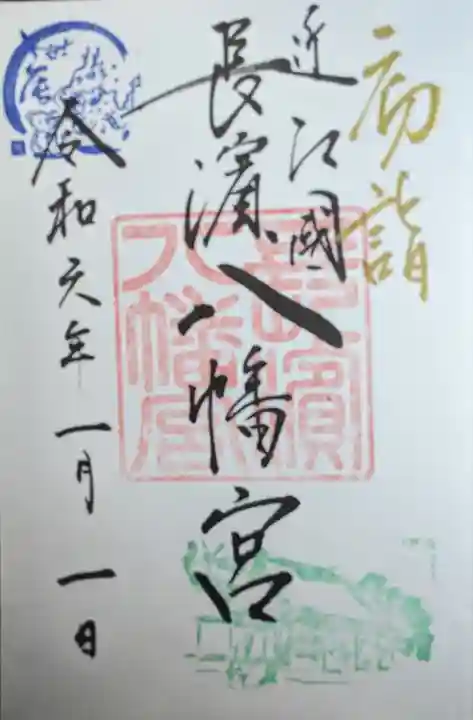 初詣
近江國
長濱八幡宮
令和六年一月一日
長濱
八幡宮